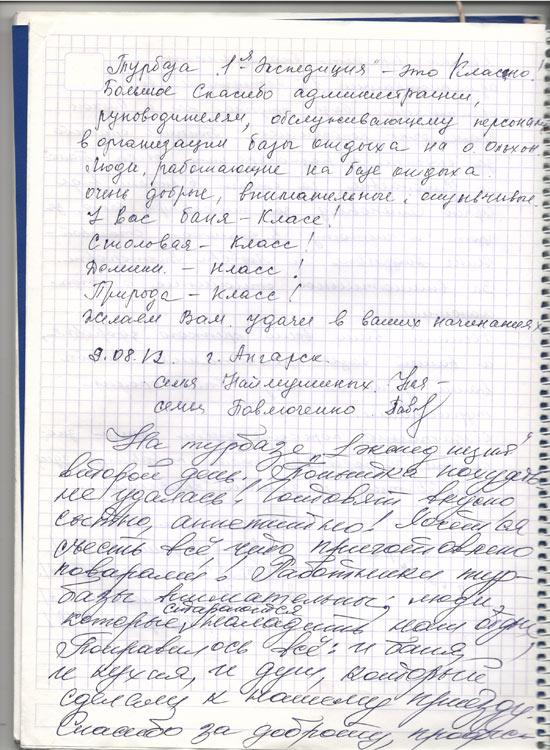 Турбаза "1я Экспедиция" - это Классно!
Большое спасибо администрации,
руководителям, обслуживающему персоналу
в организации базы отдыха на о Ольхон
Люди, работающие на базе отдыха
очень добрые, внимательные, отзывчивые.
У вас баня - Класс!
Столовая - Класс!
Домики - класс!
Природа - Класс!
Желаем Вам удачи в ваших начинаниях
9.08.12. г. Ангарск.
семья Наймушиных
семья Павлюченко
На турбазе "1 экспедиция"
второй день. Попытка похудеть
не удалась! Готовят вкусно
сытно, аппетитно! Хочется
съесть всё что приготовлено
поварами! Работники тур-
базы внимательные, люди,
которые стараются наладить наш отдых
Понравилось всё: и баня,
и кухня, и душ, который
сделали к нашему приезду.
Спасибо за доброту,